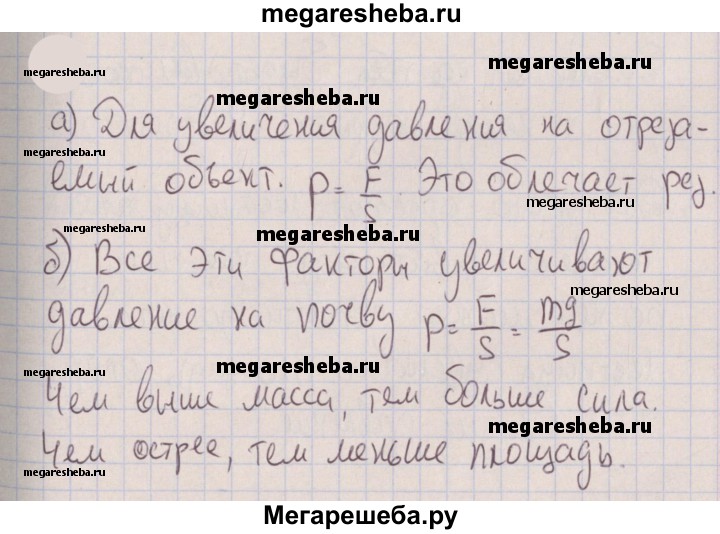 megaresheba.ru
megaresheba.ru
megaresheba.ru
megaresheba.ru
а) Для увеличения давления на отреза-
megaresheba.ru
емый объект. p = F/S. Это облечает рез.
megaresheba.ru
megaresheba.ru
megaresheba.ru
б) Все эти факторы увеличивают
megaresheba.ru
давление на почву p = F/S = mg/S
megaresheba.ru
megaresheba.ru
Чем выше масса, тем больше сила.
megaresheba.ru
Чем острее, тем меньше площадь.
megaresheba.ru
Мегарешеба.ру